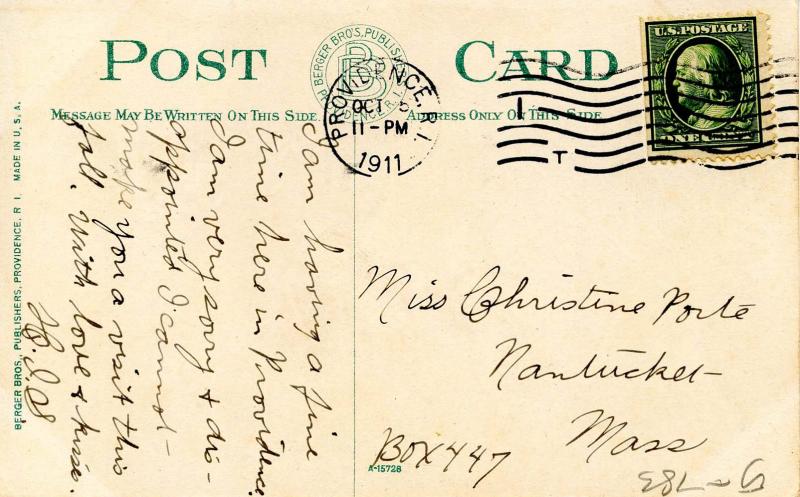 POST CARD
BERGER BRO'S, PUBLISHERS
PROVIDENCE, R. I.
B B
MESSAGE MAY BE WRITTEN ON THIS SIDE.
ADDRESS ONLY ON THIS SIDE
PROVIDENCE, R.I.
OCT 5
11-PM
1911
1
T
U.S. POSTAGE
ONE CENT
BERGER BROS., PUBLISHERS, PROVIDENCE, R. I. MADE IN U. S. A.
I am having a fine
time here in Providence.
I am very sorry & dis-
appointed I cannot
make you a visit this
fall. With love & kisses.
Miss Christine Porte
Nantucket
Mass
Box 447
A-15728